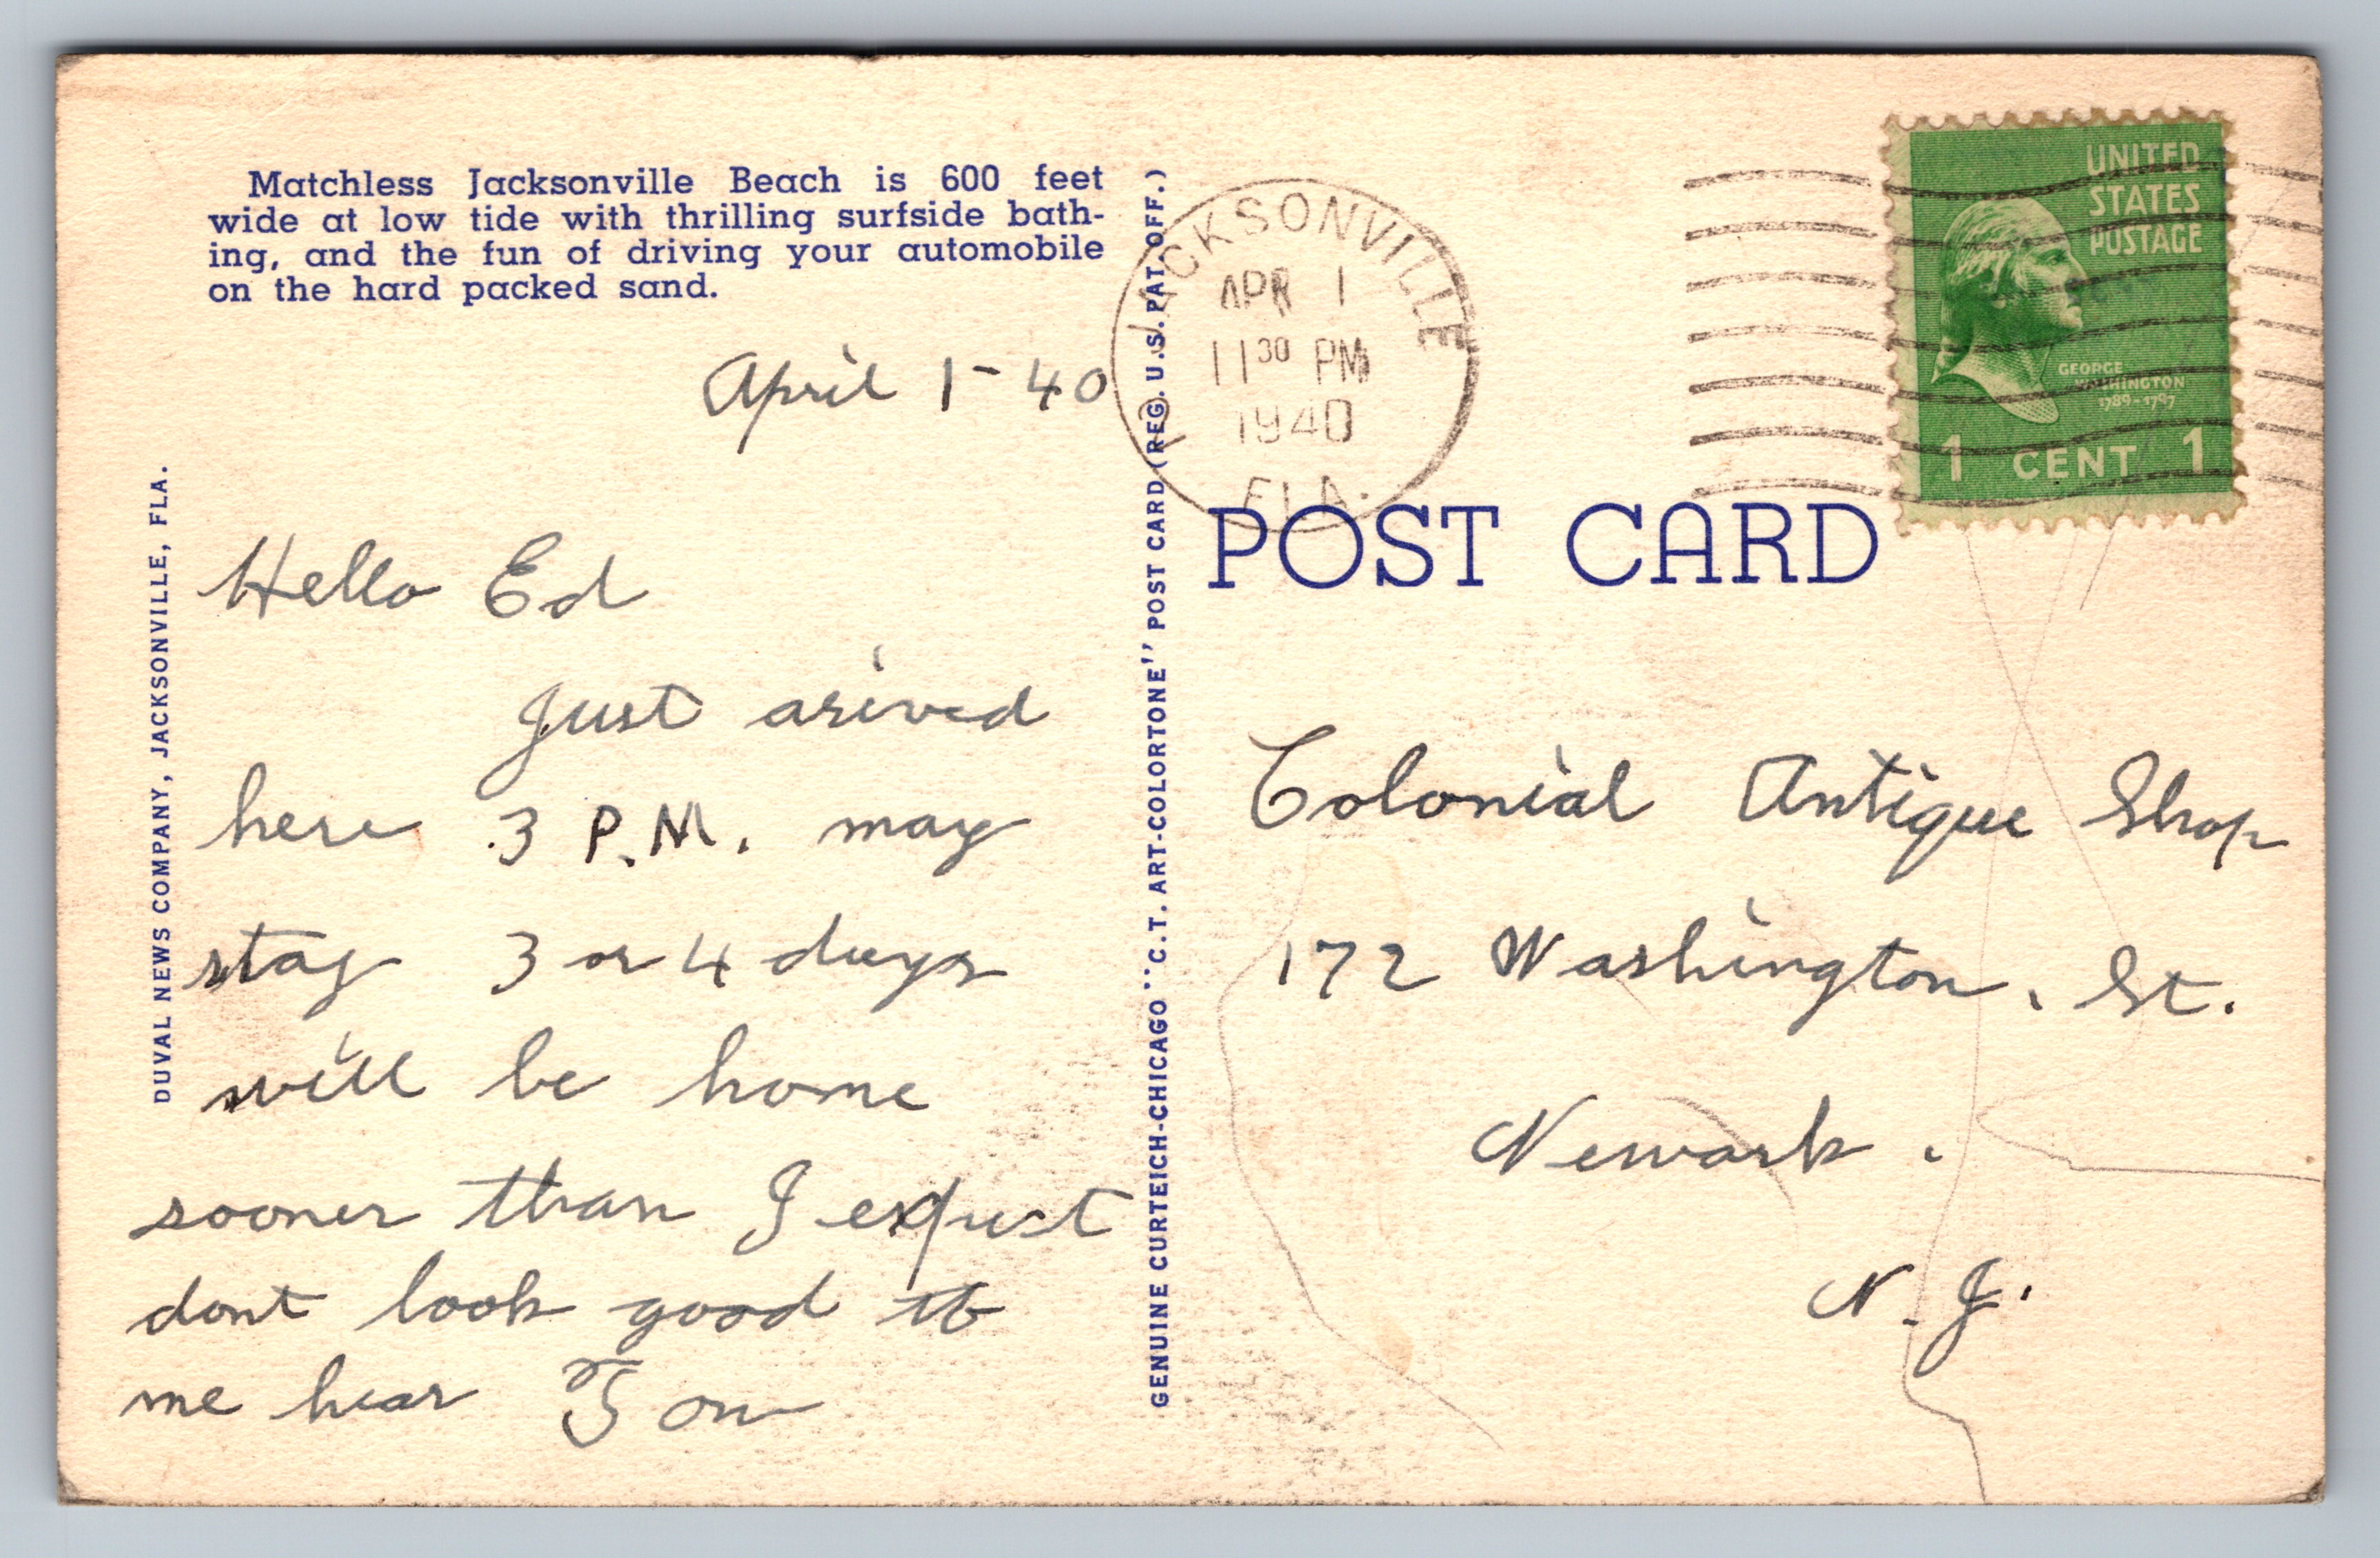 Matchless Jacksonville Beach is 600 feet
wide at low tide with thrilling surfside bath-
ing, and the fun of driving your automobile
on the hard packed sand.
April 1-40
Hello Ed
Just arived
here 3 P.M. may
stay 3 or 4 days
will be home
sooner than I expect
dont look good to
me hear Tom
DUVAL NEWS COMPANY, JACKSONVILLE, FLA.
GENUINE CURTEICH-CHICAGO "C.T. ART-COLORTONE" POST CARD (REG. U.S. PAT. OFF.)
JACKSONVILLE
APR 1
11 30 PM
1940
FLA.
UNITED
STATES
POSTAGE
GEORGE
WASHINGTON
1789-1797
1 CENT 1
POST CARD
Colonial Antique Shop
172 Washington. St.
Newark.
N.J.